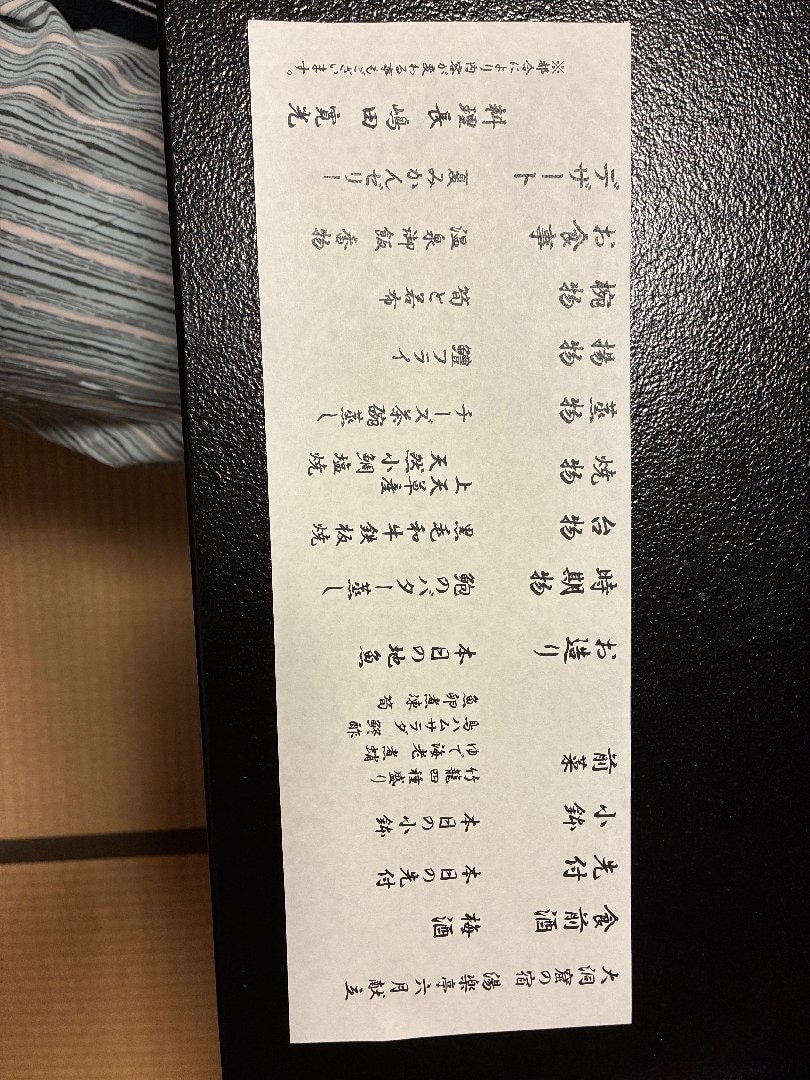 大洞窟の宿 湯楽亭六月献立
食前酒 梅酒
先付 本日の先付
小鉢 本日の小鉢
前菜 竹籠四種盛り
ゆで海老 煮蛸
鳥ハムサラダ 鮗酢
魚卵煮凍 筍
お造り 本日の地魚
時期物 鮑のバター蒸し
台物 黒毛和牛鉄板焼
焼物 上天草産
天然小鯛塩焼
蒸物 チーズ茶碗蒸し
揚物 鱧フライ
椀物 筍と若布
お食事 温泉御飯 香物
デザート 夏みかんゼリー
料理長 嶋田寛光
※都合により内容が変わる事もございます。